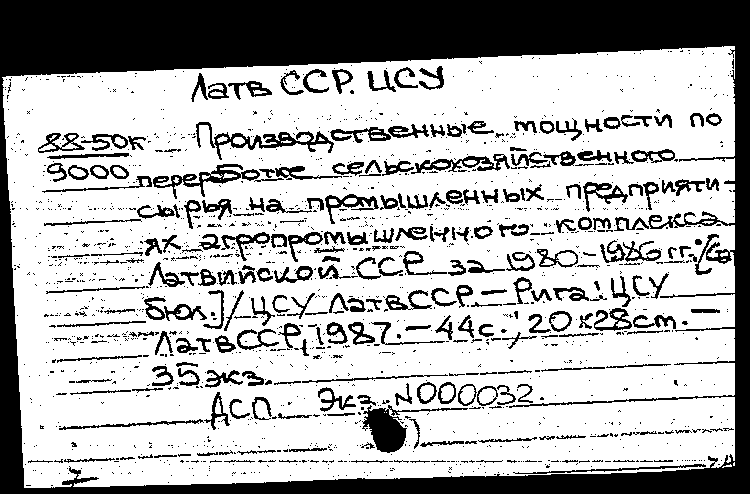 Латв ССР. ЦСУ
88-50к Производственные мощности по
9000 переработке сельскохозяйственного
сырья на промышленных предприяти-
ях агропромышленного комплекса
Латвийской ССР за 1980-1986 гг.: [Стат.
бюл.] / ЦСУ ЛатвССР. — Рига: ЦСУ
ЛатвССР, 1987. — 44 с.; 20х28 cm. —
35 экз.
ДСП. Экз. N000032.